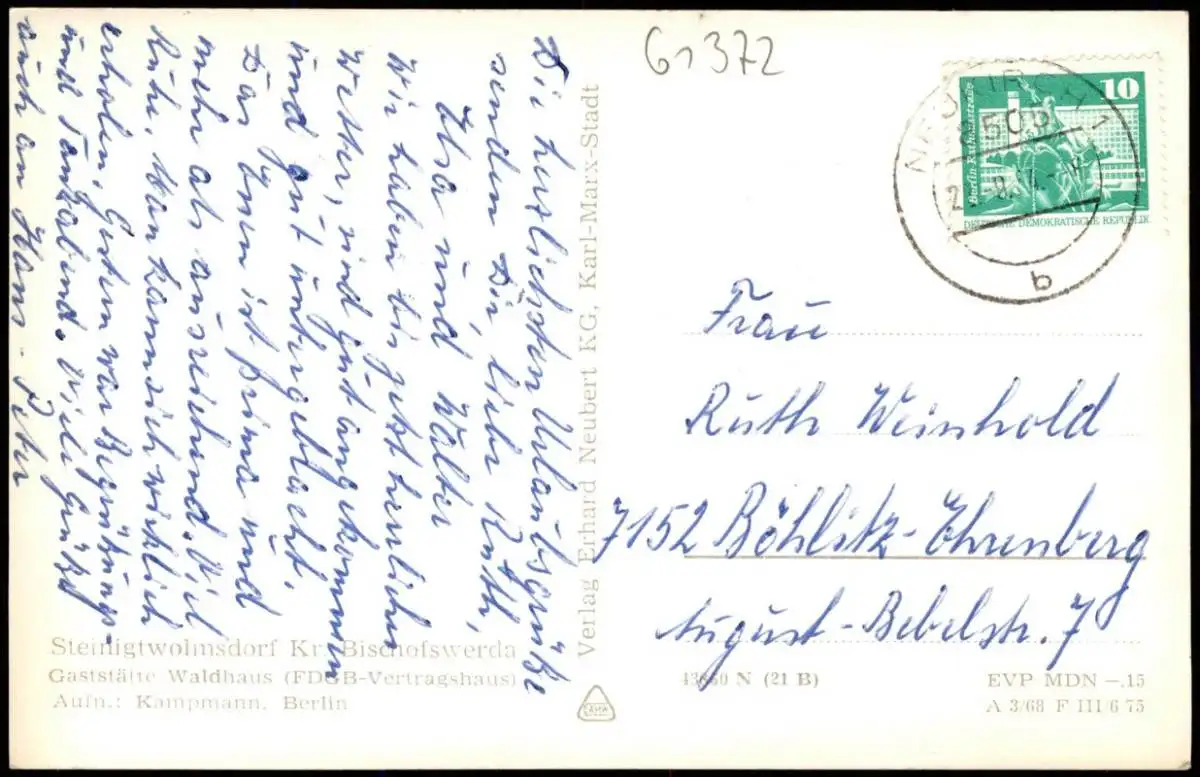 G1372
Die herzlichsten Urlaubsgrüße
senden Dir, liebe Ruth,
Ilsa und Walter
Wir haben bis jetzt herrliches
Wetter, sind gut angekommen
und gut untergebracht.
Das Essen ist prima und
mehr als ausreichend. Viel
Ruhe. Man kann sich wirklich
erholen. Gestern war Begrüßungs-
und Tanzabend. Viele Grüße
auch an Hans-Peter
Verlag Erhard Neubert KG, Karl-Marx-Stadt
10
Berlin-Rathausstraße
DEUTSCHE DEMOKRATISCHE REPUBLIK
NEUKIRCH 1
8505
b
Frau
Ruth Weinhold
7152 Böhlitz-Ehrenberg
August-Bebelstr. 7
Steinigtwolmsdorf Kr. Bischofswerda
Gaststätte Waldhaus (FDGB-Vertragshaus)
Aufn.: Kampmann, Berlin
43860 N (21 B)
EVP MDN –.15
A 3/68 F III/6 75